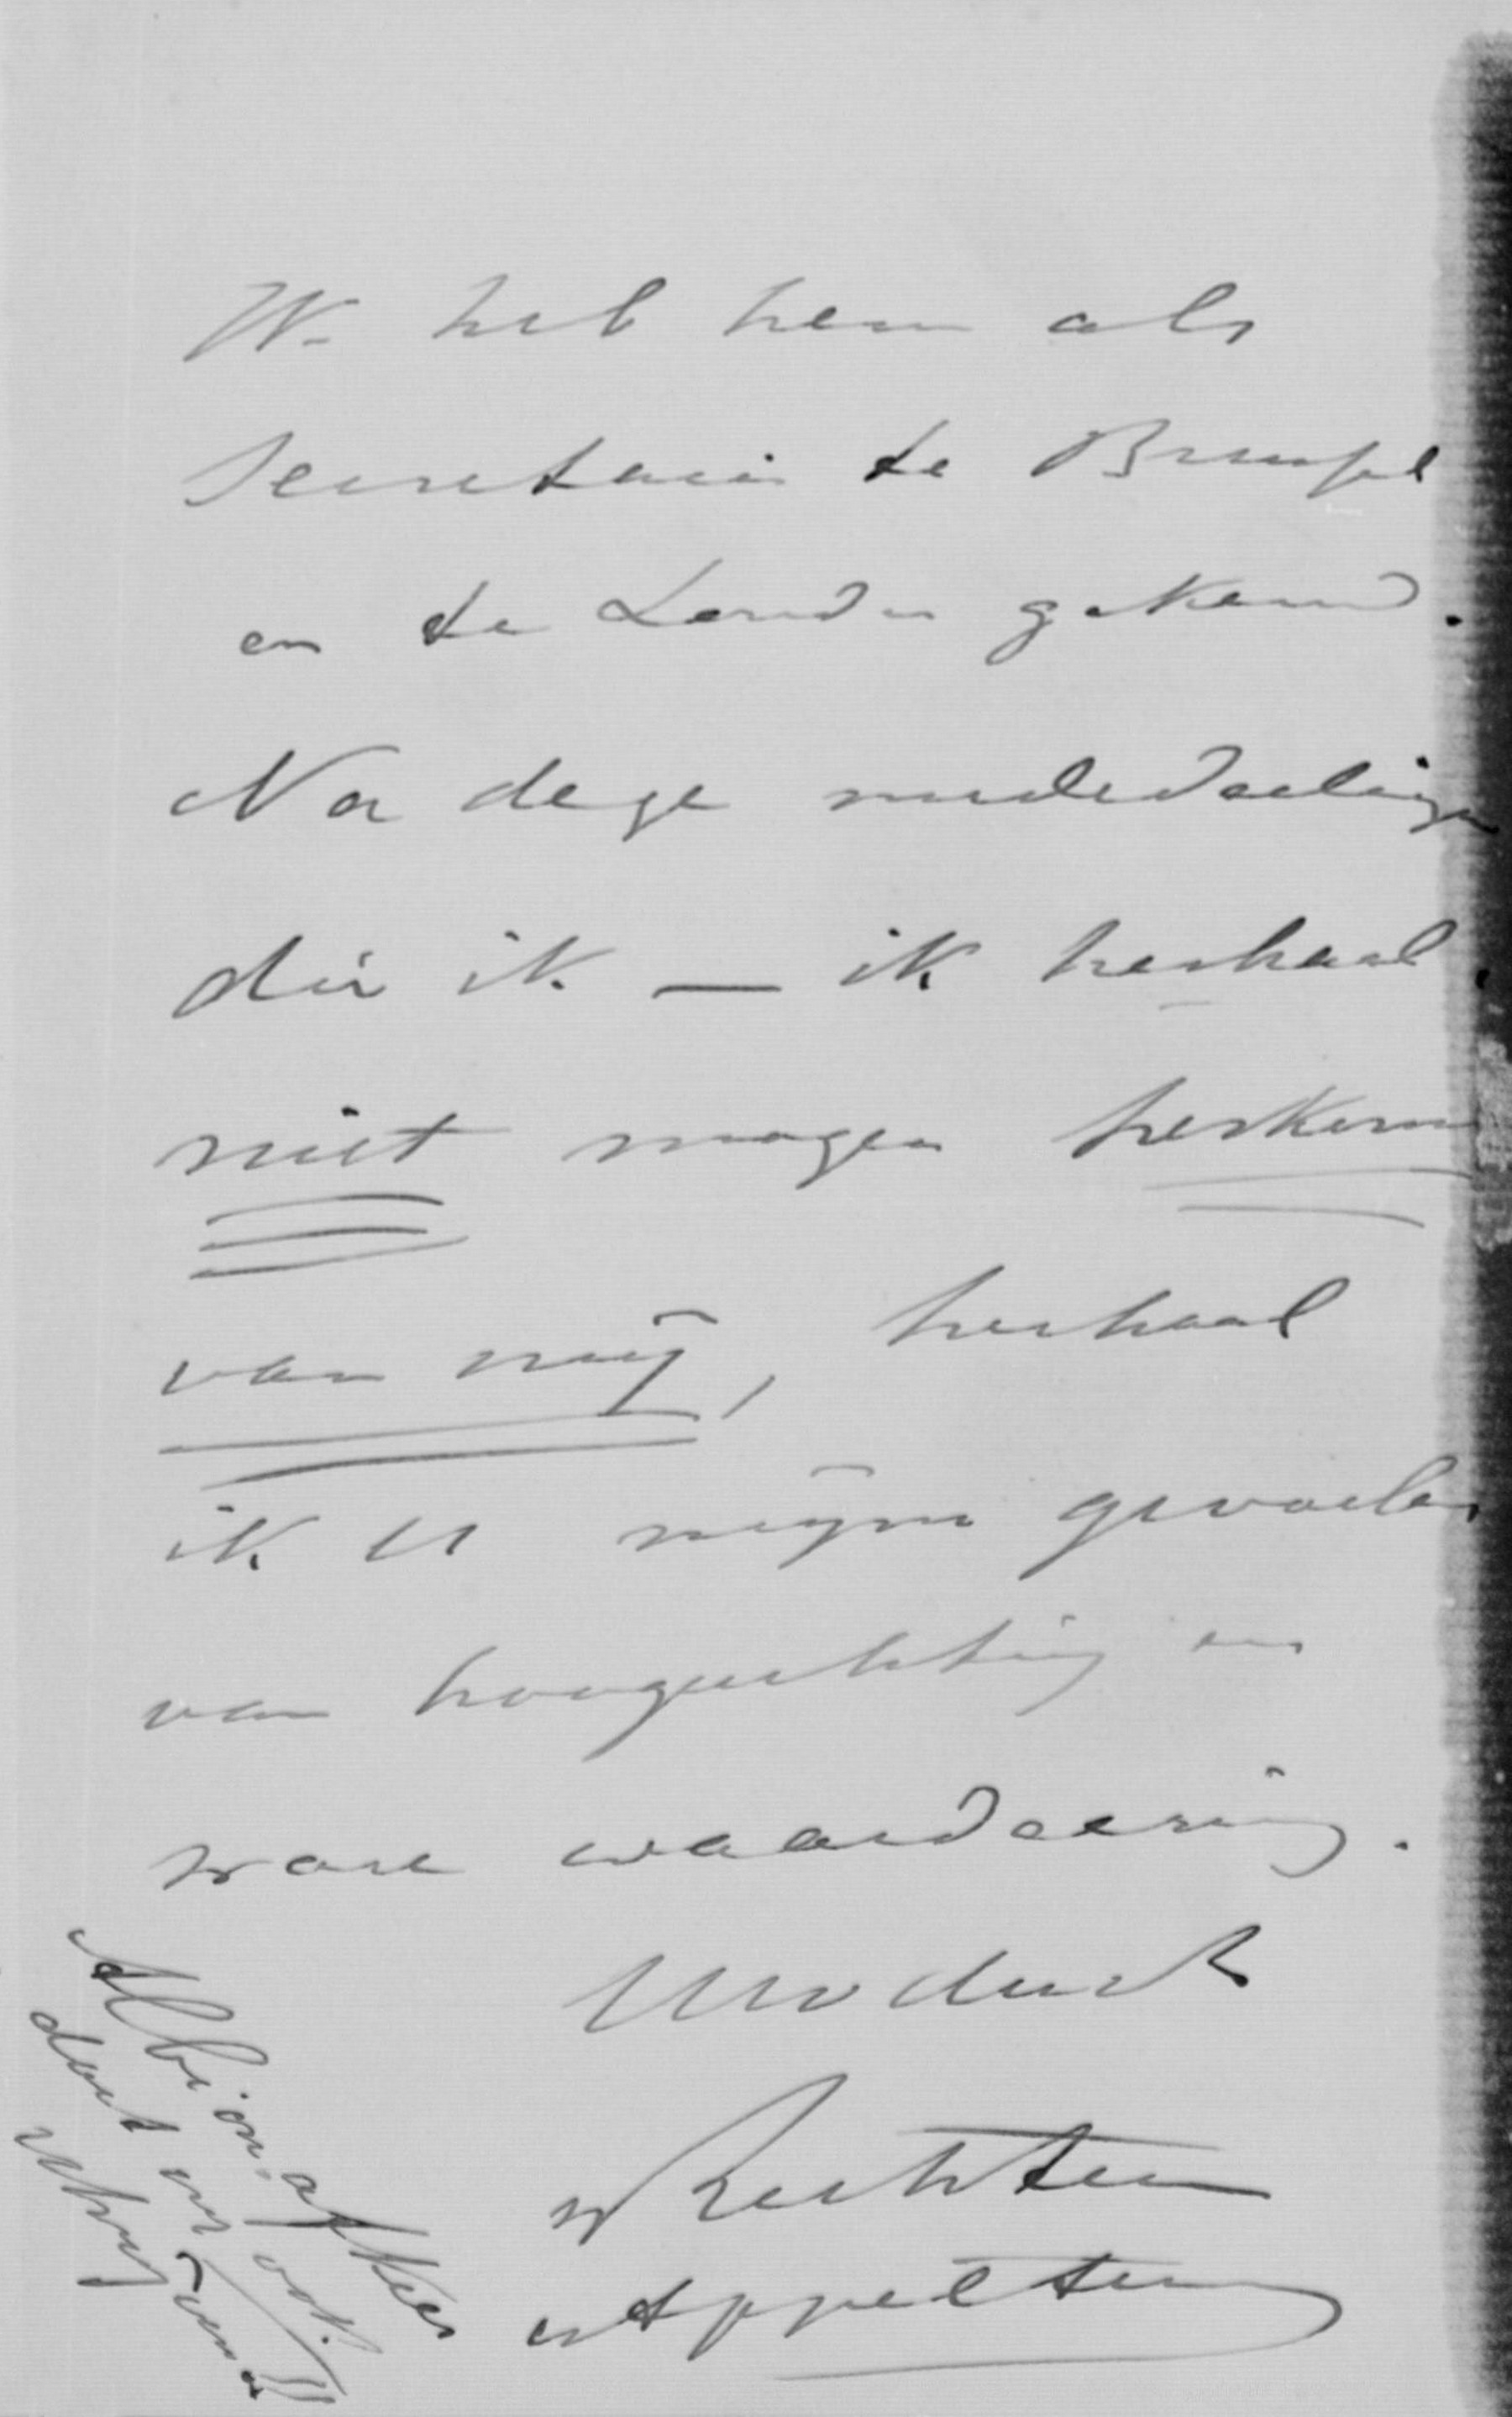 W. heb hem als
Secretaris te Brussel
en te Londen gekend.
Na deze mededeelingen
die ik — ik herhaal.
niet mogen herkennen
van mij, herhaal
ik U mijne gevoelen
van hoogachting en
ware waardeering.
Uwdud
v Rechteren
v Appeltern
Albion. afkeer
doet mij ook
schrijven